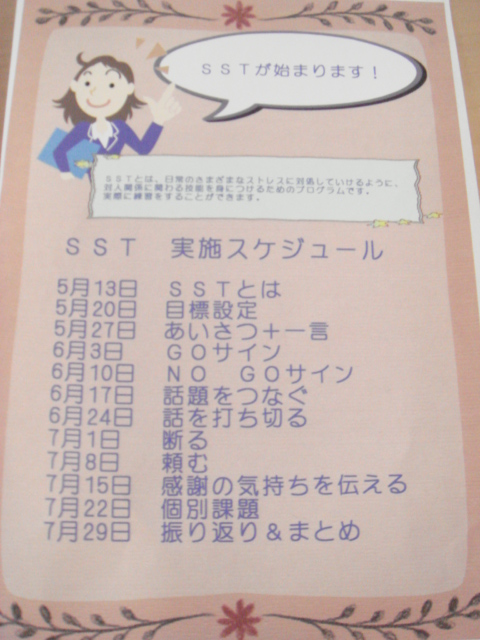 SSTが始まります！
SSTとは、日常のさまざまなストレスに対処していけるように、
対人関係に関わる技能を身につけるためのプログラムです。
実際に練習をすることができます。
SST　実施スケジュール
5月13日　SSTとは
5月20日　目標設定
5月27日　あいさつ＋一言
6月3日　GOサイン
6月10日　NO　GOサイン
6月17日　話題をつなぐ
6月24日　話を打ち切る
7月1日　断る
7月8日　頼む
7月15日　感謝の気持ちを伝える
7月22日　個別課題
7月29日　振り返り＆まとめ